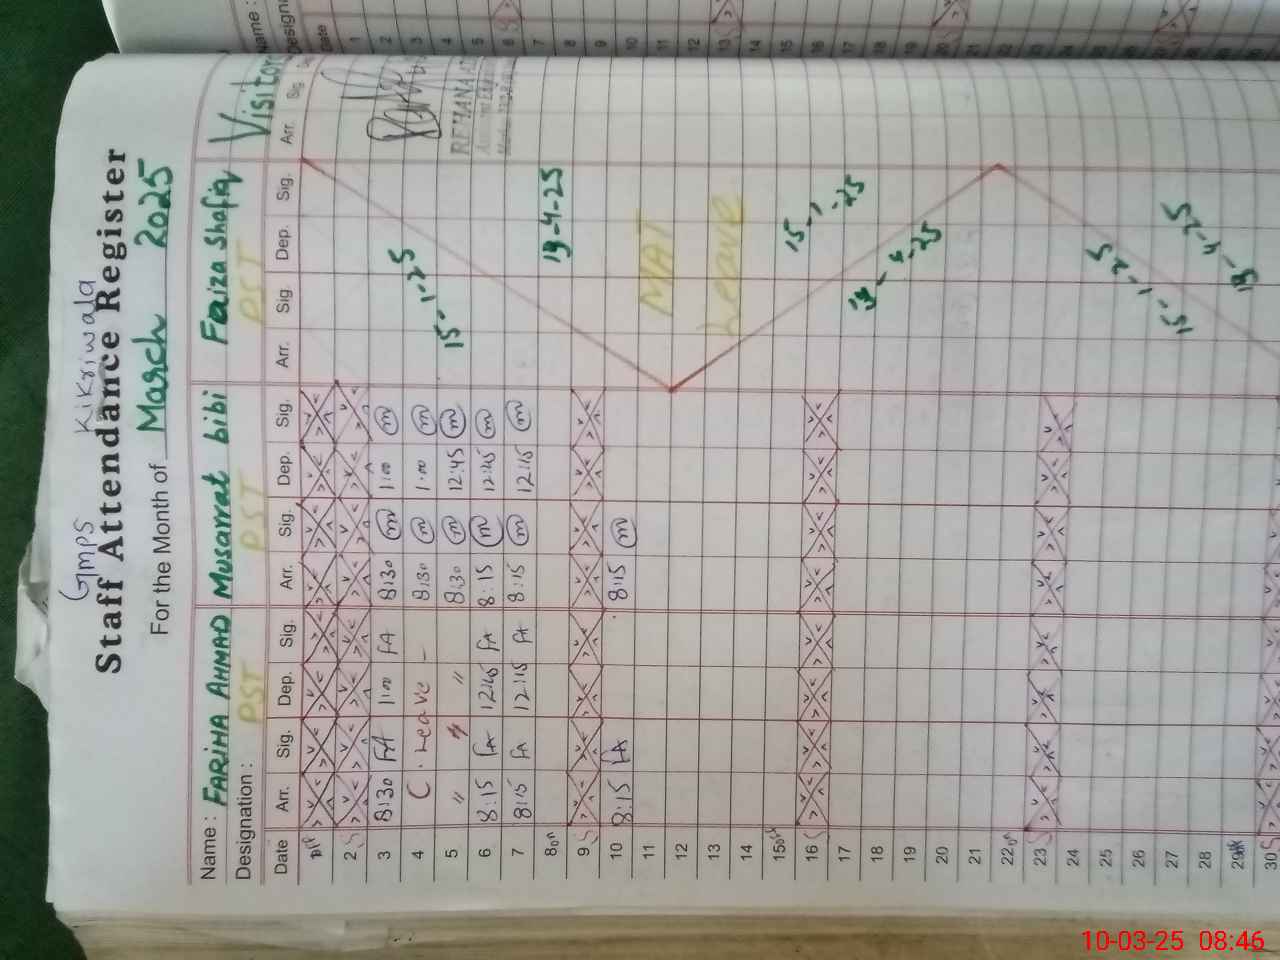 GMPS Kikriwala
Staff Attendance Register
For the Month of March 2025
Name : FARIHA AHMAD Musarrat bibi Faiza Shafiq Visitor
Designation : PST PST PST
Date Arr. Sig. Dep. Sig. Arr. Sig. Dep. Sig. Arr. Sig. Dep. Sig. Arr. Sig.
2 S
3 8:30 FA 1:00 FA 8:30 m 1:00 m
4 C. Leave - 8:30 m 1:00 m
5 " " " 8:30 m 12:45 m
6 8:15 FA 12:45 FA 8:15 m 12:45 m
7 8:15 FA 12:15 FA 8:15 m 12:15 m
8 off
9 S
10 8:15 FA 8:15 m
11
12
13
14
15 off
16 S
17
18
19
20
21
22 off
23 S
24
25
26
27
28
29 off
30 S
15-1-25
19-4-25
MAT
Leave
15-1-25
19-4-25
15-1-25
19-4-25
REHANA
Name :
Date
1
2
3
4
5
6 S
7
8
9
10
11
12
13 S
14
15
16
17
18
19
20 S
21
22
23
24
25
26
27
28
29
30
10-03-25 08:46